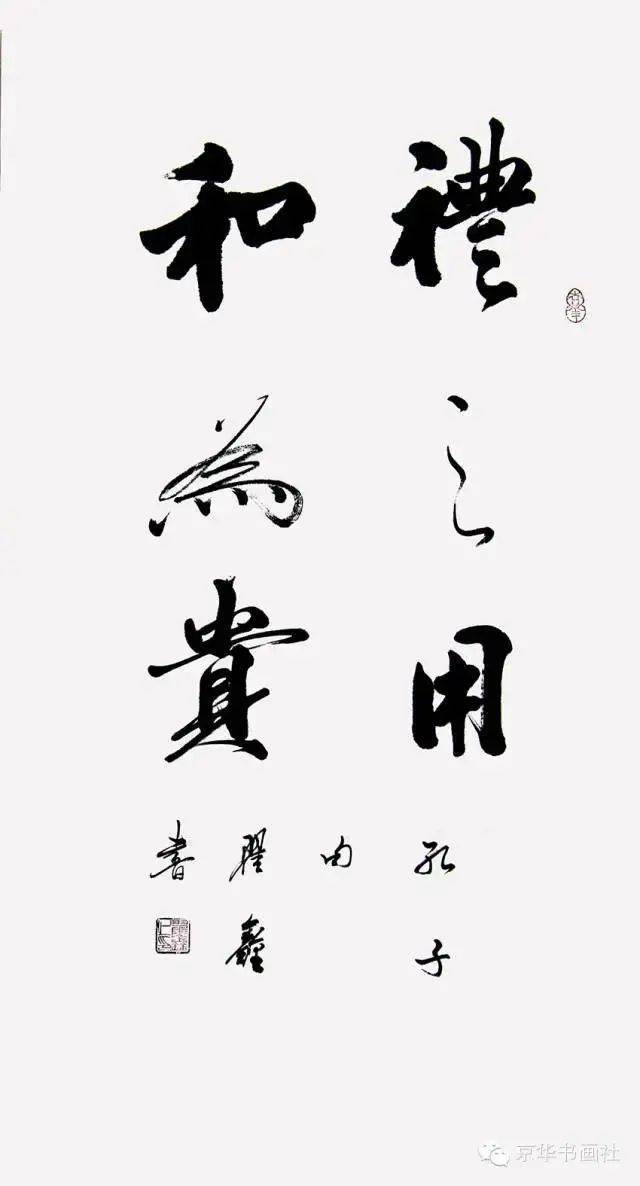 禮之用
和為貴
孔子
句
瞿鑫
書
京华书画社